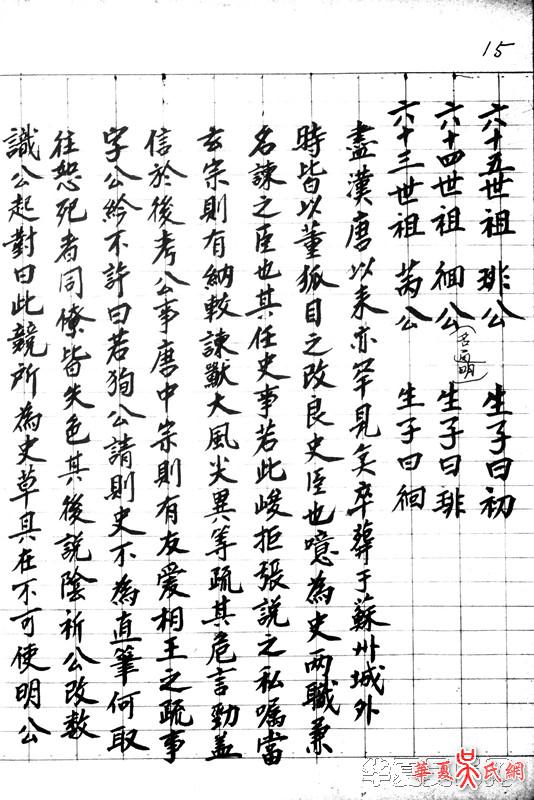 15
識公起對曰此競所為史草具在不可使明公
往恕死者同僚皆失色其後説陰祈公改數
字公紾不許曰若狥公請則史不為直筆何取
信於後考公事唐中宗則有友愛相王之疏事
玄宗則有納較諫獸大風災異等疏其危言勁盖
名諫之臣也其任史事若此峻拒張說之私嘱當
時皆以董狐目之改良史臣也噫為史兩職兼
盡漢唐以來亦罕見矣卒葬于蘇州城外
六十三世祖 公 生子曰徊
六十四世祖 徊公 生子曰琲
六十五世祖 琲公 生子曰初
華夏吴氏網